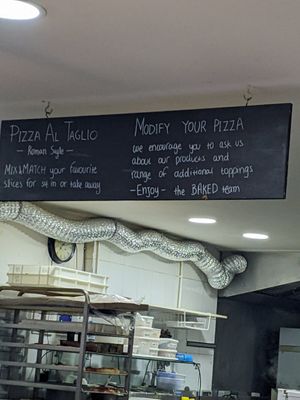 PIZZA AL TAGLIO
- Roman Style -
MIX & MATCH your favourite
slices for sit in or take away
MODIFY YOUR PIZZA
we encourage you to ask us
about our products and
range of additional toppings
- Enjoy - the BAKED team